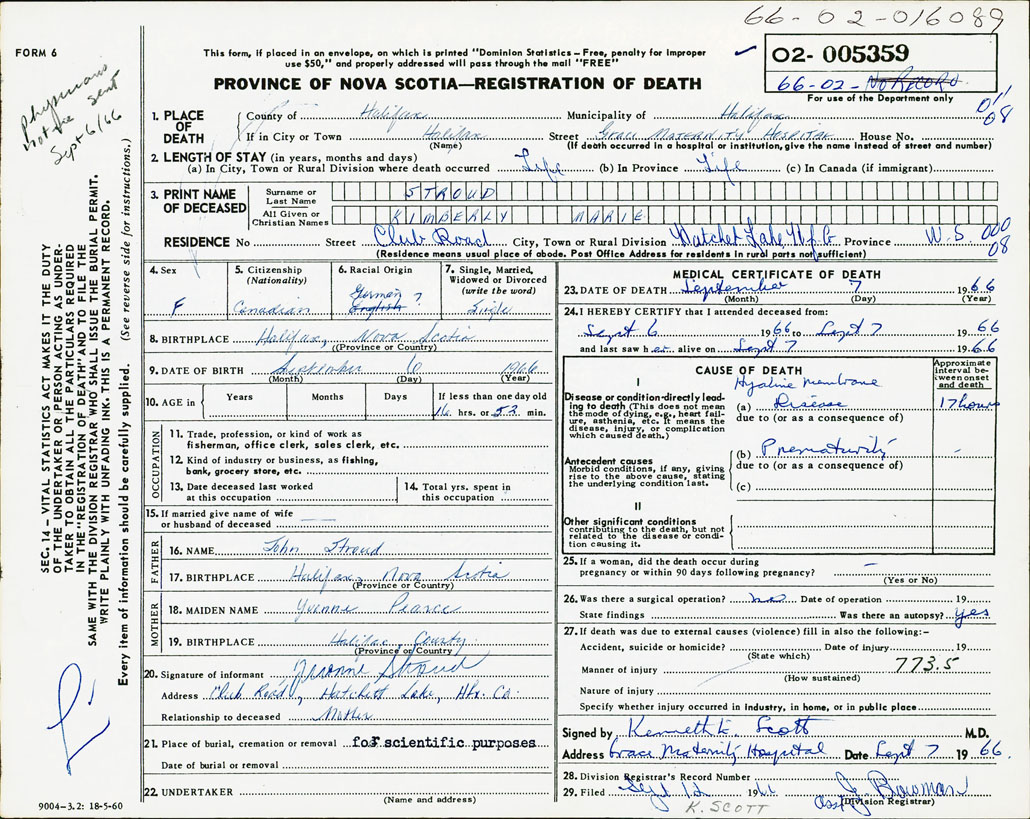 66-02-016089
FORM 6
This form, if placed in an envelope, on which is printed "Dominion Statistics – Free, penalty for improper
use $50," and properly addressed will pass through the mail "FREE"
PROVINCE OF NOVA SCOTIA—REGISTRATION OF DEATH
02- 005359
66-02- NO RECORD
For use of the Department only
011
08
Physicians
notice sent
Sept 6/66
1. PLACE OF DEATH
County of Halifax Municipality of Halifax
If in City or Town Halifax Street Grace Maternity Hospital House No.
(Name) (If death occurred in a hospital or institution, give the name instead of street and number)
2. LENGTH OF STAY (in years, months and days)
(a) In City, Town or Rural Division where death occurred Life (b) In Province Life (c) In Canada (if immigrant)
3. PRINT NAME OF DECEASED
Surname or Last Name STROUD
All Given or Christian Names KIMBERLY MARIE
RESIDENCE No Street Club Road City, Town or Rural Division Hatchet Lake Hfx Co Province N.S. 000
08
(Residence means usual place of abode. Post Office Address for residents in rural parts not sufficient)
4. Sex F
5. Citizenship (Nationality) Canadian
6. Racial Origin German ? English
7. Single, Married, Widowed or Divorced (write the word) Single
8. BIRTHPLACE Halifax, Nova Scotia
(Province or Country)
9. DATE OF BIRTH September 6 1966
(Month) (Day) (Year)
10. AGE in Years Months Days If less than one day 16 hrs. or 52 min.
OCCUPATION
11. Trade, profession, or kind of work as
fisherman, office clerk, sales clerk, etc.
12. Kind of industry or business, as fishing,
bank, grocery store, etc.
13. Date deceased last worked
at this occupation
14. Total yrs. spent in
this occupation
15. If married give name of wife
or husband of deceased
FATHER
16. NAME John Stroud
17. BIRTHPLACE Halifax, Nova Scotia
(Province or Country)
MOTHER
18. MAIDEN NAME Yvonne Pearce
19. BIRTHPLACE Halifax County
(Province or Country)
20. Signature of informant Yvonne Stroud
Address Club Road, Hatchett Lake, Hfx. Co.
Relationship to deceased Mother
21. Place of burial, cremation or removal for scientific purposes
Date of burial or removal
22. UNDERTAKER
(Name and address)
9004–3.2: 18-5-60
SEC. 14 – VITAL STATISTICS ACT MAKES IT THE DUTY
OF THE UNDERTAKER OR PERSON ACTING AS UNDER-
TAKER TO OBTAIN ALL THE PARTICULARS REQUIRED
IN THE "REGISTRATION OF DEATH" AND TO FILE THE
SAME WITH THE DIVISION REGISTRAR WHO SHALL ISSUE THE BURIAL PERMIT.
WRITE PLAINLY WITH UNFADING INK. THIS IS A PERMANENT RECORD.
Every item of information should be carefully supplied. (See reverse side for instructions.)
MEDICAL CERTIFICATE OF DEATH
23. DATE OF DEATH September 7 1966
(Month) (Day) (Year)
24. I HEREBY CERTIFY that I attended deceased from:
Sept 6 1966 to Sept 7 1966
and last saw her alive on Sept 7 1966
CAUSE OF DEATH
Approximate interval between onset and death
I
Disease or condition directly lead-
ing to death (This does not mean
the mode of dying, e.g., heart fail-
ure, asthenia, etc. It means the
disease, injury, or complication
which caused death.)
Hyaline membrane
(a) Disease 17 hours
due to (or as a consequence of)
Antecedent causes
Morbid conditions, if any, giving
rise to the above cause, stating
the underlying condition last.
(b) Prematurity -
due to (or as a consequence of)
(c)
II
Other significant conditions
contributing to the death, but not
related to the disease or condi-
tion causing it.
25. If a woman, did the death occur during
pregnancy or within 90 days following pregnancy? —
(Yes or No)
26. Was there a surgical operation? no Date of operation 19
State findings Was there an autopsy? yes
27. If death was due to external causes (violence) fill in also the following:–
Accident, suicide or homicide? Date of injury 19
(State which)
Manner of injury 773.5
(How sustained)
Nature of injury
Specify whether injury occurred in industry, in home, or in public place
Signed by Kenneth E. Scott M.D.
Address Grace Maternity Hospital Date Sept 7 1966.
28. Division Registrar's Record Number
29. Filed Sept 12 1966 Bowman
Asst (Division Registrar)
K. SCOTT